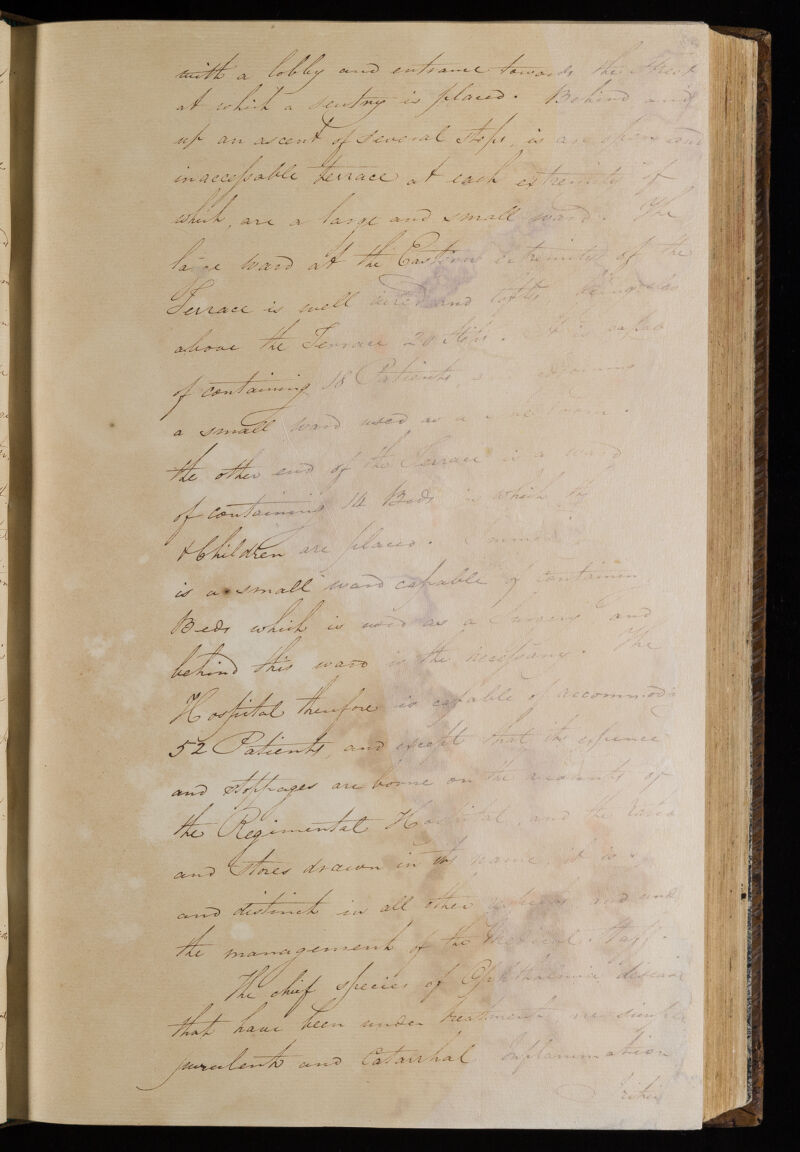 with a lobby and entrance towards the Street
at which a sentry is placed. Behind and
up an ascent of several steps, is an open and
inaccessable terrace at each extremity of
which, are a large and small ward. The
large ward at the Eastern extremity of the
Terrace is well aired and lofty,
above the Terrace 20 steps. It is
of containing 18 Patients,
a small ward used as a
the other end of the Terrace is a ward
of containing 14 Beds in which the
& Children are placed.
is a small ward capable of containing
Beds which is used as a Surgery and
behind this ward is the necessary. The
Hospital therefore is capable of accommoda
52 Patients, and except that its expence
and stoppages are borne on the accounts of
the Regimental Hospital, and the
and Stores drawn in its name, it is
and distinct in all other respects and und
the management of the Medical Staff.
The chief species of Ophthalmia disease
that have been under treatment, are simple
purulent and Catarrhal Inflammation
Iritis